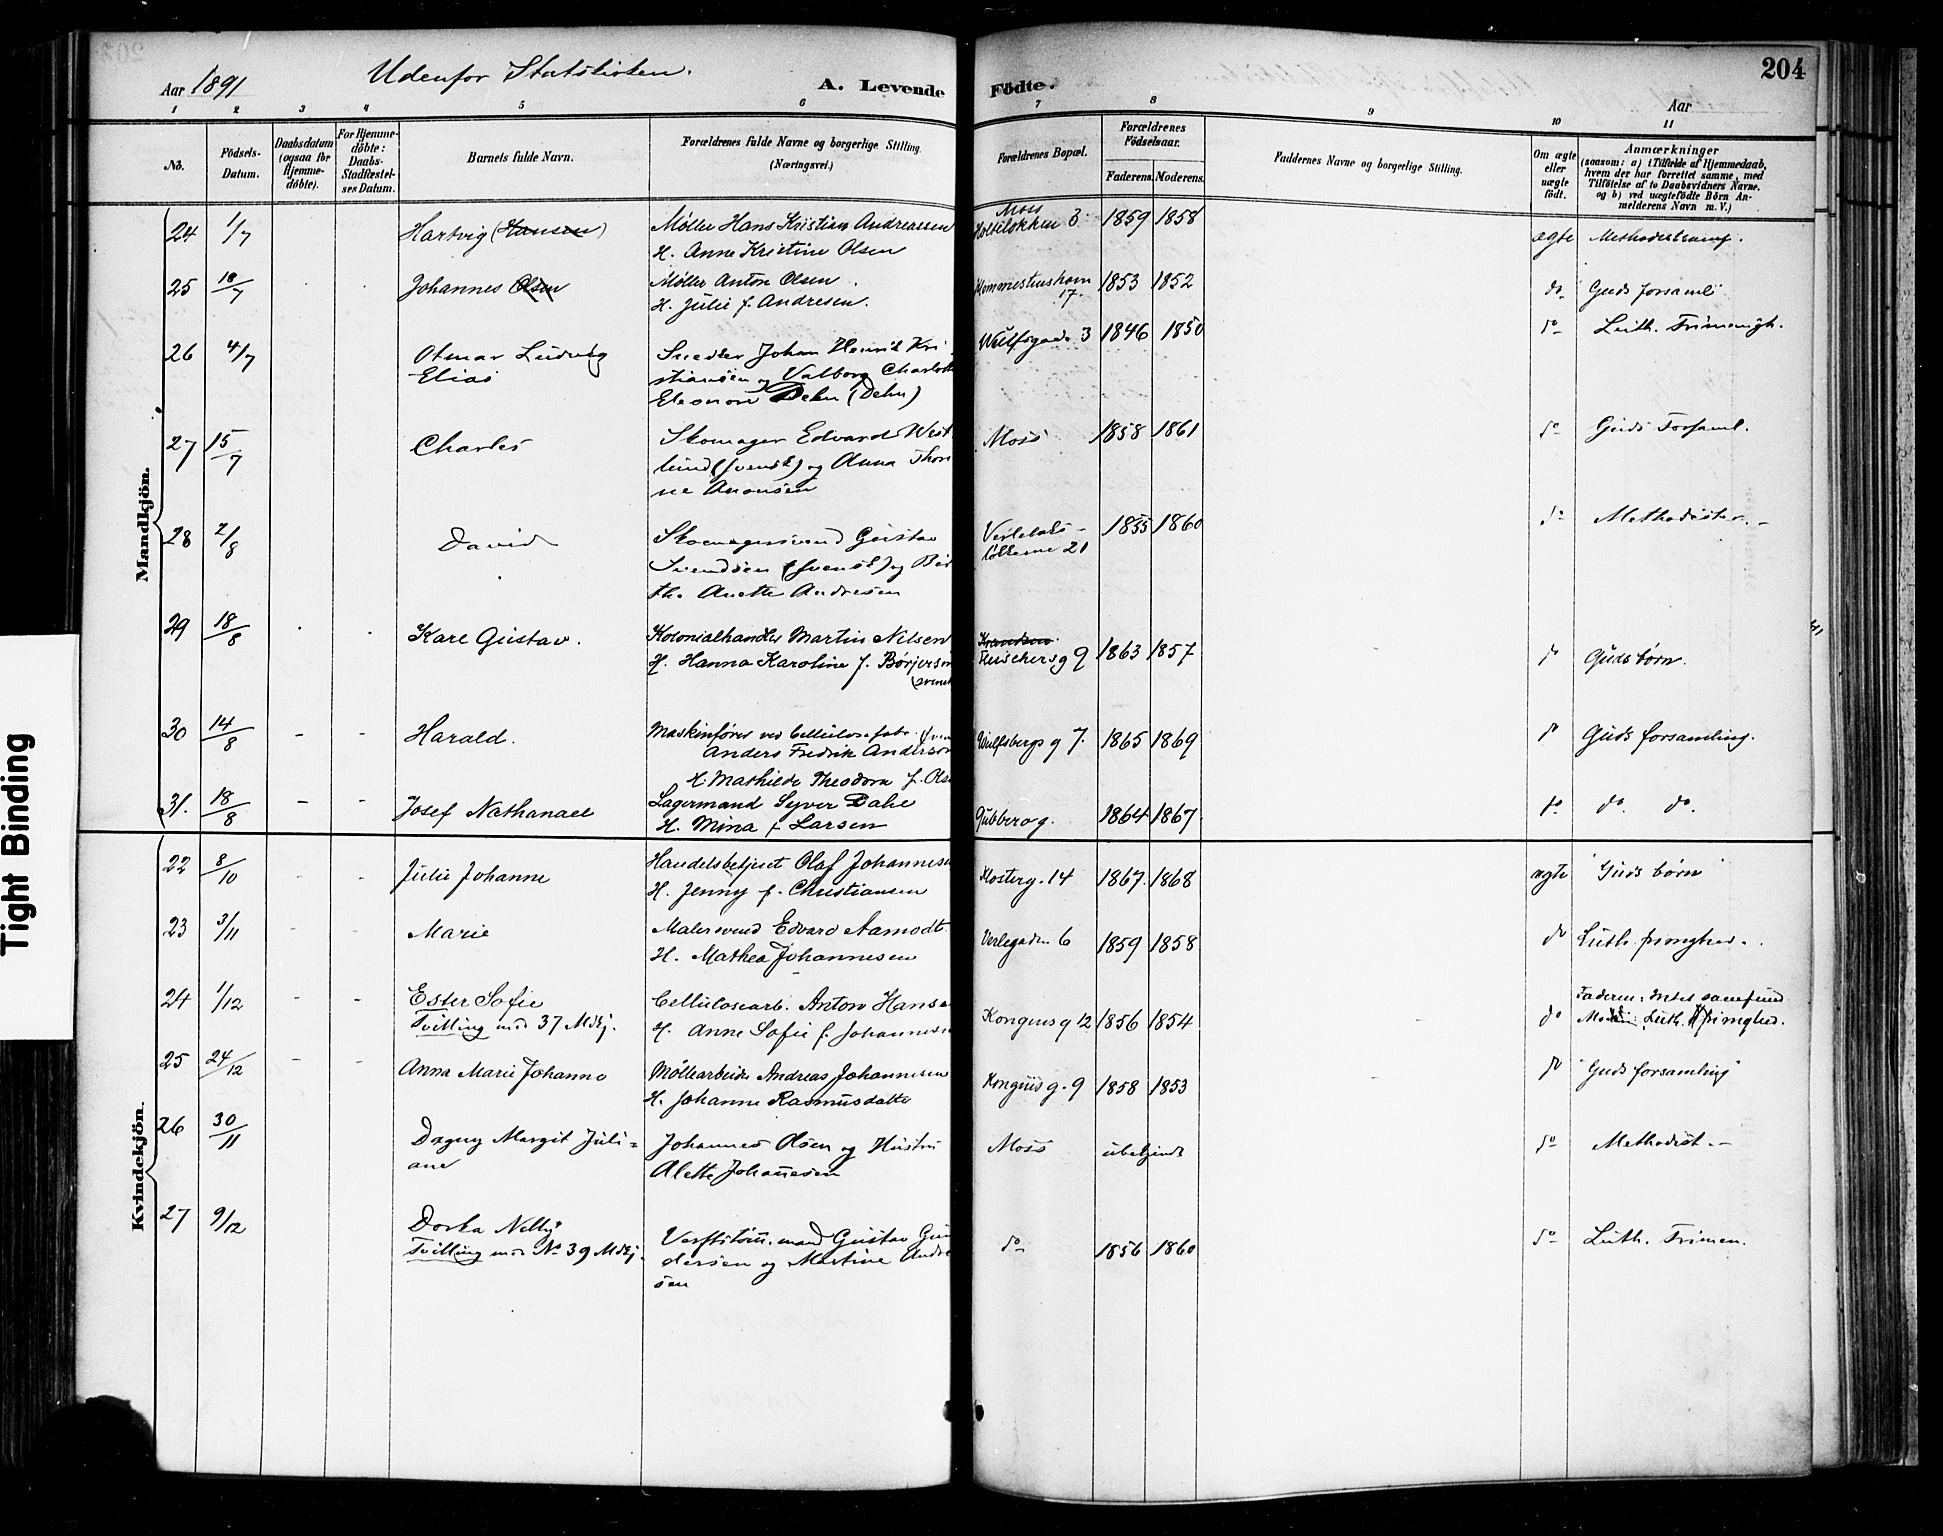 Aar 1891
Udenfor Statskirken.
A. Levende Födte.
204
Aar
1 2 3 4 5 6 7 8 9 10 11
No.
Födsels-Datum.
Daabsdatum (ogsaa for Hjemme-döbte).
For Hjemme-döbte: Daabs-Stadfæstel-ses Datum.
Barnets fulde Navn.
Forældrenes fulde Navne og borgerlige Stilling. (Næringsvei.)
Forældrenes Bopæl.
Forældrenes Födselsaar.
Faderens. Moderens.
Faddernes Navne og borgerlige Stilling.
Om ægte eller uægte födt.
Anmærkninger (saasom: a) i Tilfælde af Hjemmedaab, hvem der har forrettet samme, med Tilföielse af to Daabsvidners Navne, og b) ved uægtefödte Börn An-melderens Navn m. V.)
Mandkjön.
24 1/7 Hartvig (Hansen) Møller Hans Kristian Andreassen Moss 1859 1858
H. Anne Kristine Olsen ægte Methodistsamf.
25 18/7 Johannes Olsen Møller Anton Olsen 17. 1853 1852 do Guds forsaml
H. Julie f. Andresen.
26 4/7 Otmar Ludvig Snedker Johan Henrik Kri- 3 1846 1850 do Luth. Frimenigh.
Elias stiansen og Valborg Charlotte
Eleonore Dehn (Dehn)
27 15/7 Charles Skomager Edvard West- Moss 1858 1861 do Guds Forsaml.
lund (svensk) og Anna Thori
ne Aronsen
28 2/8 David Skomagersvend Gustav 1855 1860 do Methodister.
Svendsen (svensk) og Ber 21
the Anette Andresen
29 18/8 Kare Gustav. Kolonialhandler Martin Nilsen
H. Hanna Karoline f. Børjerson 9 1863 1857 do Guds børn.
(svensk
30 14/8 Harald. Maskinfører ved Cellulosefabr. Wulfsbergs g 7. 1865 1869 do Guds forsamling.
Anders Fredrik Anderson
H. Mathilde Theodora f. Olse
31. 18/8 Josef Nathanael Lagermand Syver Dahl Gubberog. 1864 1867 do do do.
H. Mina f Larsen
Kvindekjön.
22 8/10 Julie Johanne Handelsbetjent Olaf Johannesen Klosterg. 14 1867. 1868 ægte "Guds børn"
H. Jenny f. Christiansen
23 3/11 Marie Malersvend Edvard Aamodt Verlegaden 6 1859 1858 do Luth. frimghed.
H. Mathea Johannesen
24 1/12 Ester Sofie Cellulosearb. Anton Hanse Faderen: Intet samfund
Tvilling med 37 Mkj. H. Anne Sofie f. Johannesen Kongens g 12 1856 1854 do Moderen: Luth. frimghed.
25 24/12 Anna Marie Johanne Møllearbeider Andreas Johannesen Kongens g. 9 1858 1853 do "Guds forsamling"
H. Johanne Rasmusdatte
26 30/11 Dagny Margit Juli= Johannes Olsen og Hustru Moss ubekjendt do Methodist.
ane Alette Johannesen
27 9/12 Dorka Nelly Verftstøm. mand Gustav Gun do 1856 1860 do Luth. Frimen.
Tvilling med No 39 Mkj. dersen og Martine Andre
sen
Tight Binding